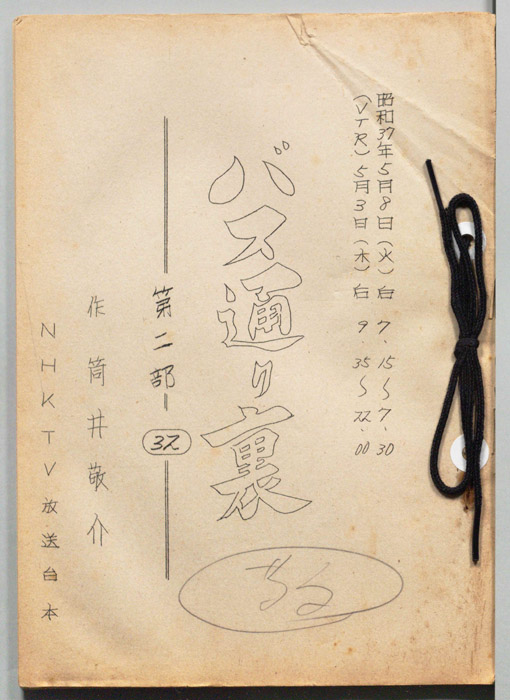 昭和37年5月8日(火)自 7.15〜7.30
(VTR)5月3日(木)自 9.35〜22.00
バス通り裏
第二部
32
作 筒井敬介
NHKTV放送台本